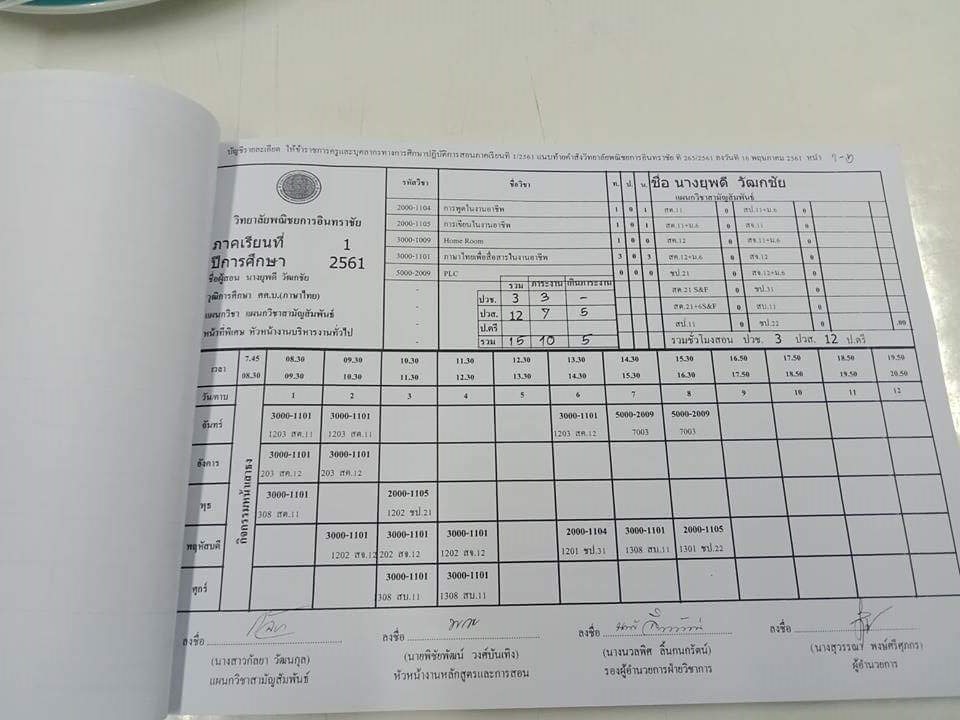 บัญชีรายละเอียด ให้ข้าราชการครูและบุคลากรทางการศึกษาปฏิบัติการสอนภาคเรียนที่ 1/2561 แนบท้ายคำสั่งวิทยาลัยพณิชยการอินทราชัย ที่ 265/2561 ลงวันที่ 16 พฤษภาคม 2561 หน้า ๑-๒
วิทยาลัยพณิชยการอินทราชัย
ภาคเรียนที่ 1
ปีการศึกษา 2561
ชื่อผู้สอน นางยุพดี วัฒกชัย
วุฒิการศึกษา ศศ.บ.(ภาษาไทย)
แผนกวิชา แผนกวิชาสามัญสัมพันธ์
หน้าที่พิเศษ หัวหน้างานบริหารงานทั่วไป
รหัสวิชา ชื่อวิชา ท. ป. น.
2000-1104 การพูดในงานอาชีพ 1 0 1
2000-1105 การเขียนในงานอาชีพ 1 0 1
3000-1009 Home Room 1 0 0
3000-1101 ภาษาไทยเพื่อสื่อสารในงานอาชีพ 3 0 3
5000-2009 PLC 0 0 0
รวม ภาระงาน เกินภาระงาน
ปวช. 3 3 -
ปวส. 12 7 5
ป.ตรี
รวม 15 10 5
ชื่อ นางยุพดี วัฒกชัย
แผนกวิชาสามัญสัมพันธ์
สค.11 0 สป.11+ม.6 0
สค.11+ม.6 0 สจ.11 0
สค.12 0 สจ.11+ม.6 0
สค.12+ม.6 0 สจ.12 0
ชป.21 0 สจ.12+ม.6 0
สค.21 S&F 0 ชป.31 0
สค.21+6S&F 0 สบ.11 0
สป.11 0 ชป.22 0 .00
รวมชั่วโมงสอน ปวช. 3 ปวส. 12 ป.ตรี
เวลา 7.45 08.30 09.30 10.30 11.30 12.30 13.30 14.30 15.30 16.50 17.50 18.50 19.50
08.30 09.30 10.30 11.30 12.30 13.30 14.30 15.30 16.30 17.50 18.50 19.50 20.50
วัน/คาบ 1 2 3 4 5 6 7 8 9 10 11 12
กิจกรรมหน้าเสาธง
จันทร์ 3000-1101 3000-1101 3000-1101 5000-2009 5000-2009
1203 สค.11 1203 สค.11 1203 สค.12 7003 7003
อังคาร 3000-1101 3000-1101
203 สค.12 203 สค.12
พุธ 3000-1101 2000-1105
308 สค.11 1202 ชป.21
พฤหัสบดี 3000-1101 3000-1101 3000-1101 2000-1104 3000-1101 2000-1105
1202 สจ.12 202 สจ.12 1202 สจ.12 1201 ชป.31 1308 สบ.11 1301 ชป.22
ศุกร์ 3000-1101 3000-1101
1308 สบ.11 1308 สบ.11
ลงชื่อ ลงชื่อ ลงชื่อ ลงชื่อ
(นางสาวกัลยา วัฒนกุล) (นายพิชัยพัฒน์ วงศ์บันเทิง) (นางนวลพิศ ลิ้นกนกรัตน์) (นางสุวรรณา พงษ์ศรีศุภกร)
แผนกวิชาสามัญสัมพันธ์ หัวหน้างานหลักสูตรและการสอน รองผู้อำนวยการฝ่ายวิชาการ ผู้อำนวยการ